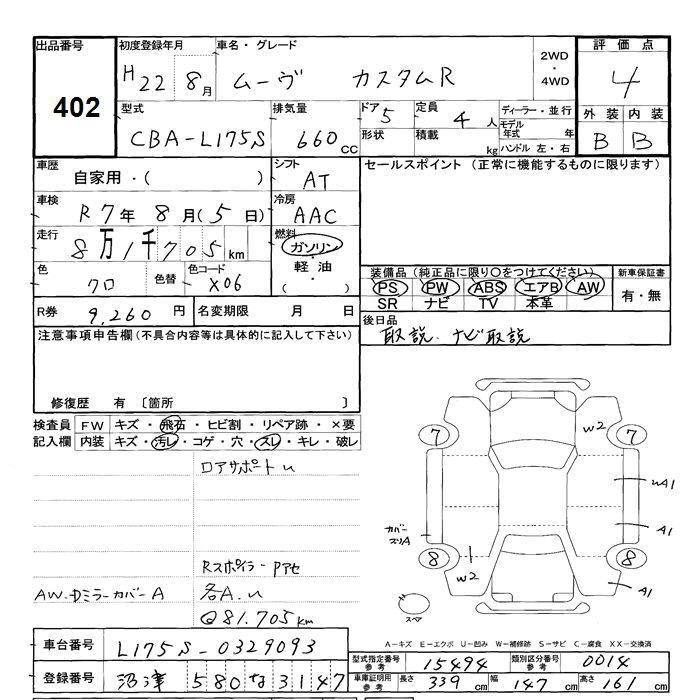 出品番号 初度登録年月 車名・グレード 2WD・4WD 評価点
402 H22 8月 ムーヴ カスタムR 4
型式 排気量 ドア 5 定員 4人 ディーラー・並行 外装 内装
CBA-L175S 660cc 形状 積載 kg モデル年式 年 ハンドル 左・右 B B
車歴 シフト セールスポイント (正常に機能するものに限ります)
自家用・( ) AT
車検 冷房
R7年8月(5日) AAC
走行 燃料
8万1千705km ガソリン・軽油・( )
色 色替 色コード 装備品 (純正品に限り○をつけてください) 新車保証書
クロ X06 PS PW ABS エアB AW 有・無
SR ナビ TV 本革
R券 9,260円 名変期限 月 日 後日品
取説、ナビ取説
注意事項申告欄(不具合内容等は具体的に記入して下さい)
修復歴 有 〔箇所 〕
検査員 FW キズ・飛石・ヒビ割・リペア跡・×要
記入欄 内装 キズ・汚レ・コゲ・穴・スレ・キレ・破レ
ロアサポートu
7 7
w2
uA1
カバースリA A1
8 8
w2 A1
Rスポイラー Pアセ
AW.Dミラーカバー A 各A.u
@81.705km
スペア
A-キズ E-エクボ U-凹み W-補修跡 S-サビ C-腐食 XX-交換済
車台番号 L175S-0329093
型式指定番号 参考 15494 類別区分番号 参考 0014
登録番号 沼津 580 な 3147
車庫証明用 参考 長さ 339cm 幅 147cm 高さ 161cm